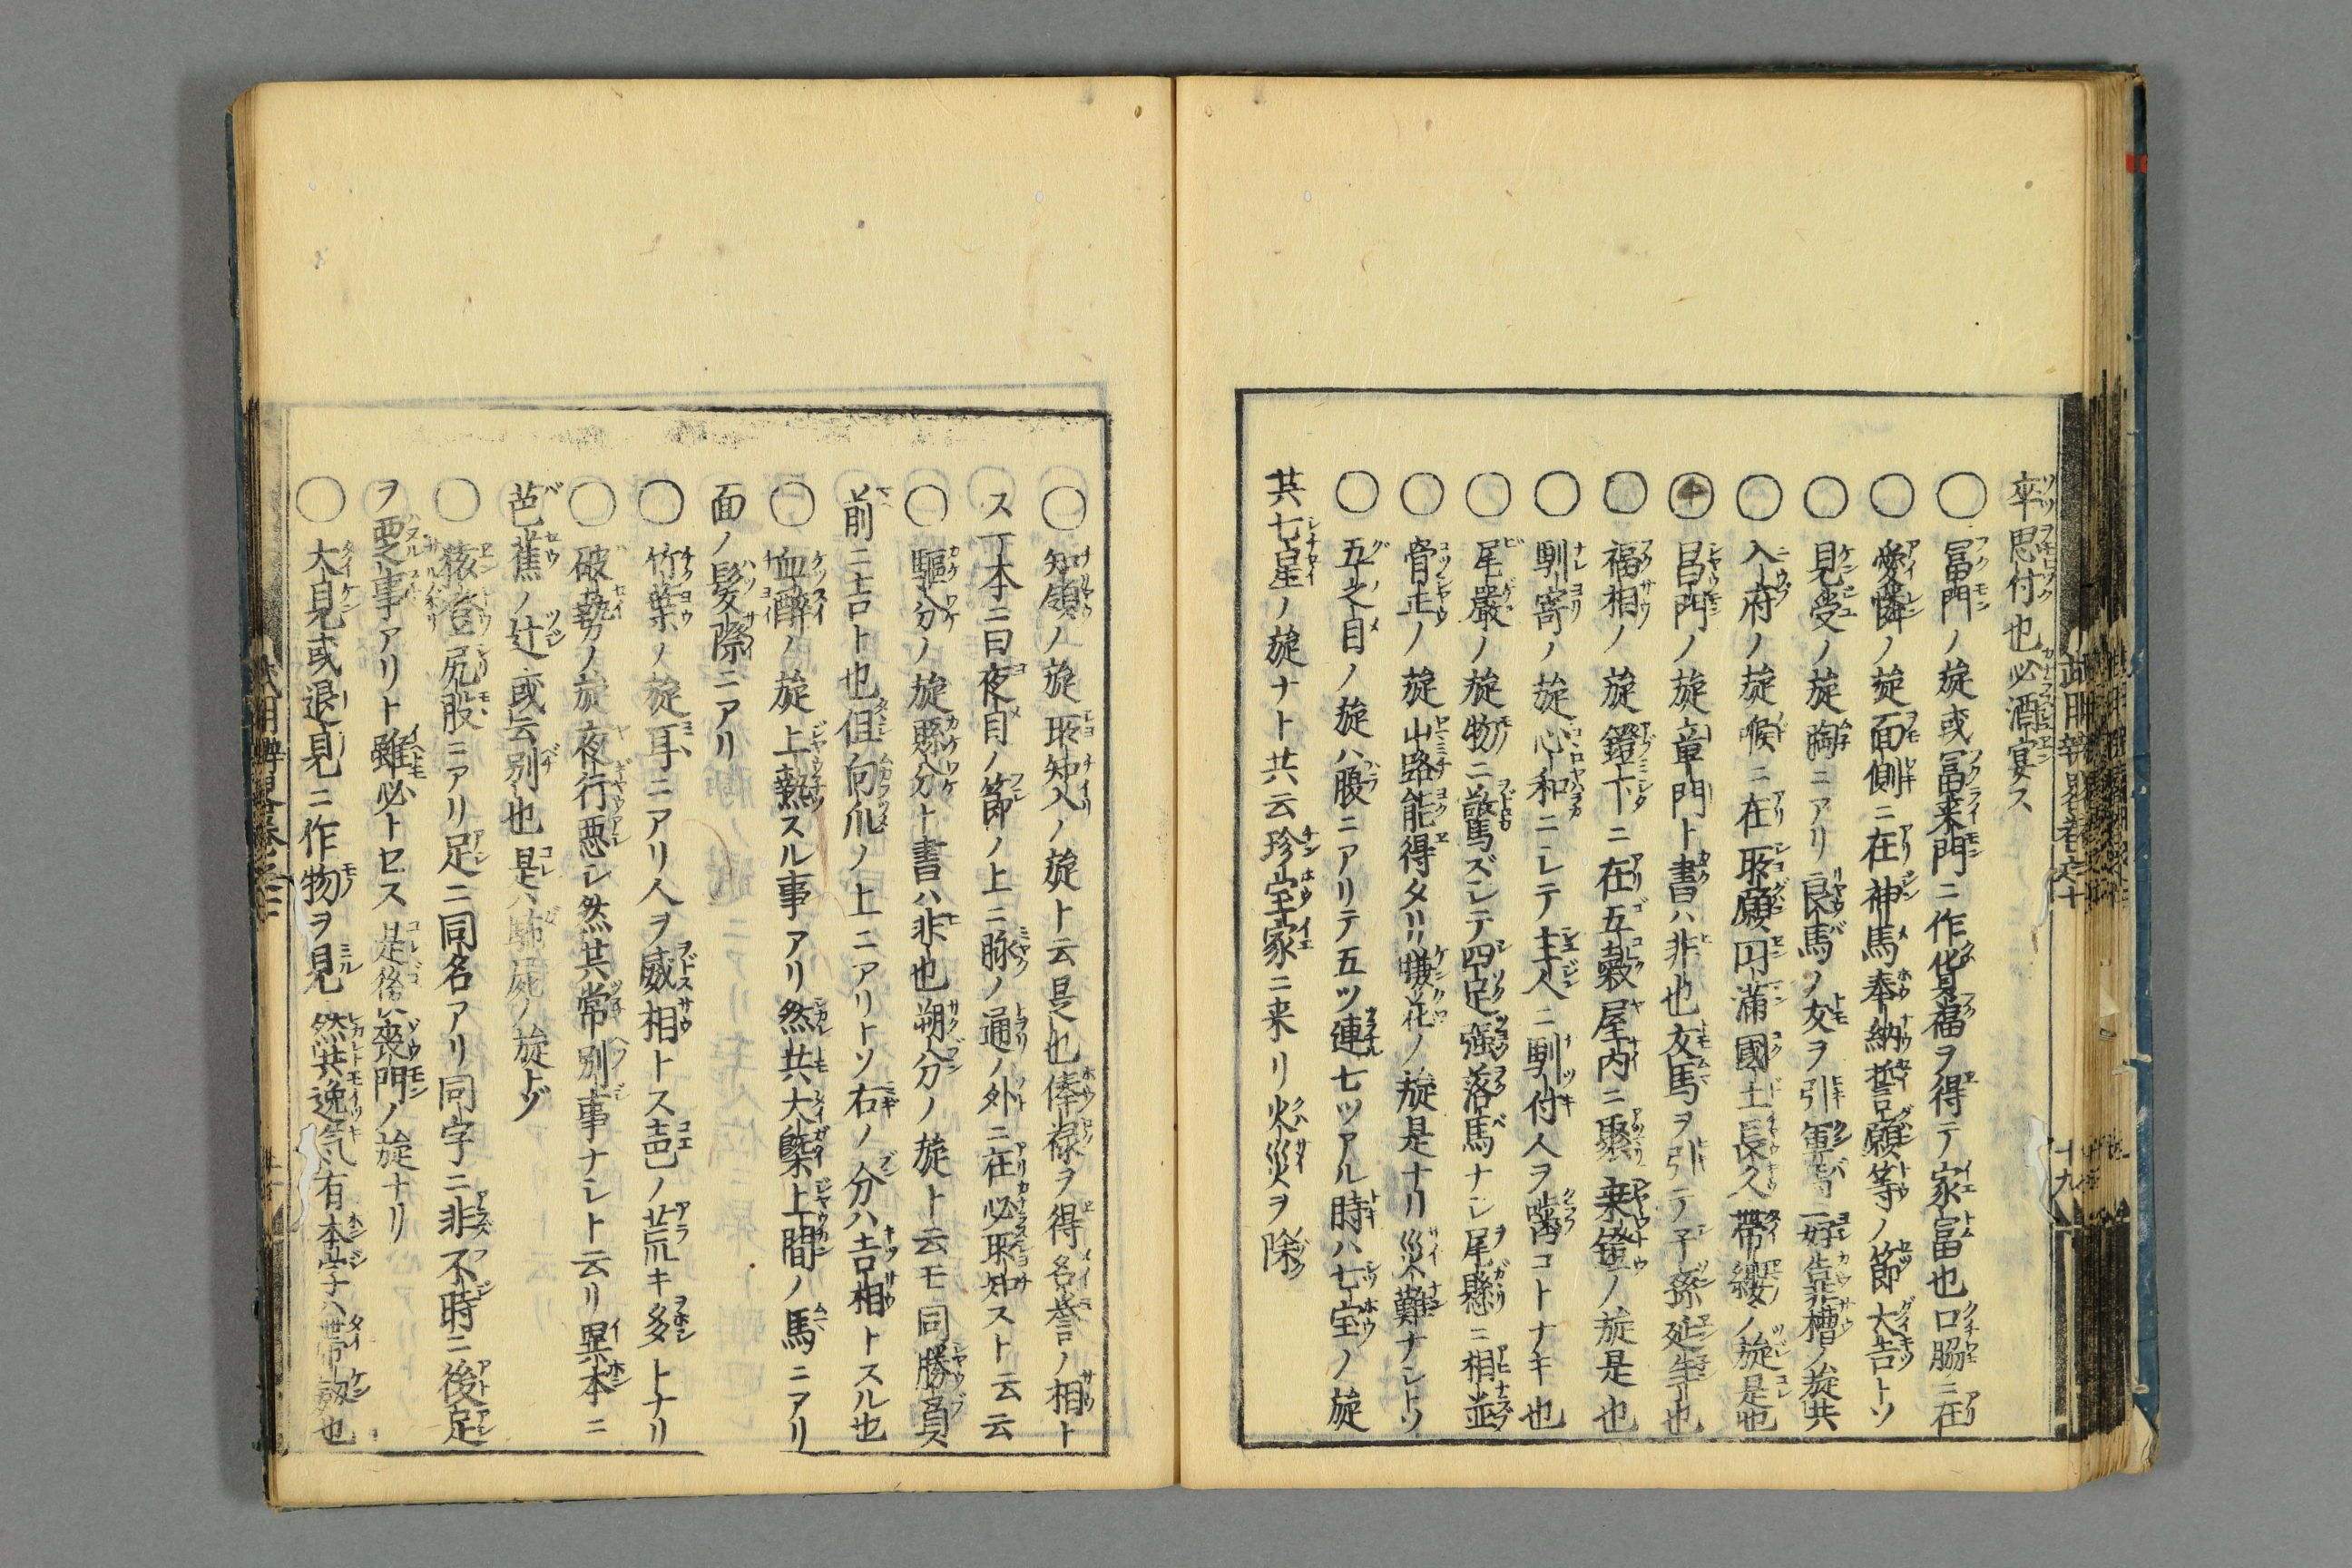 卒思付也必酒宴ス
○冨門ノ旋或冨来門ニ作貨福ヲ得テ家富也口脇ニ在
○愛憐ノ旋面側ニ在神馬奉納誓願等ノ節大吉トソ
○見受ノ旋胸ニアリ良馬ノ友ヲ引軍馬ニ好靠槽ノ旋共
○入府ノ旋喉ニ在取願円満國土長久帯纓ノ旋是也
○昌門ノ旋章門ト書ハ非也友馬ヲ引テ子孫延生也
○福相ノ旋鐙下ニ在五穀屋内ニ聚来鐙ノ旋是也
○馴寄ノ旋心和ニシテ主人ニ馴付人ヲ噛コトナキ也
○尾嚴ノ旋物ニ驚ズシテ四足强落馬ナシ尾懸ニ相並
○骨正ノ旋山路能得タリ嫌花ノ旋是ナリ災難ナシトソ
○五之目ノ旋ハ腹ニアリテ五ツ連七ツアル時ハ七宝ノ旋
其七星ノ旋ナト共云珍宝家ニ来リ火災ヲ除
十九
○知領ノ旋取知入ノ旋ト云是也俸禄ヲ得名誉ノ相ト
ス一本ニ曰夜目ノ節ノ上ニ脉ノ通ノ外ニ在必取知スト云云
○驅分ノ旋賭分ト書ハ非也朔分ノ旋ト云モ同勝負
前ニ吉ト也但向爪ノ上ニアリトソ右ノ分ハ吉相トスル也
○血酔ノ旋上熱スル事アリ然共大槩上間ノ馬ニアリ
面ノ髪際ニアリ
○竹葉ノ旋耳ニアリ人ヲ威相トス声ノ荒キ多トナリ
○破勢ノ旋夜行悪シ然共常別事ナシト云リ異本ニ
芭蕉ノ辻或云別也是ハ ノ旋トゾ
○猿登尻股ニアリ足ニ同名アリ同字ニ非不時ニ後足
ヲ 事アリト雖必トセス是後ハ喪門ノ旋ナリ
○大見或退見ニ作物ヲ見 然共逸気有本字ハ帯剱也